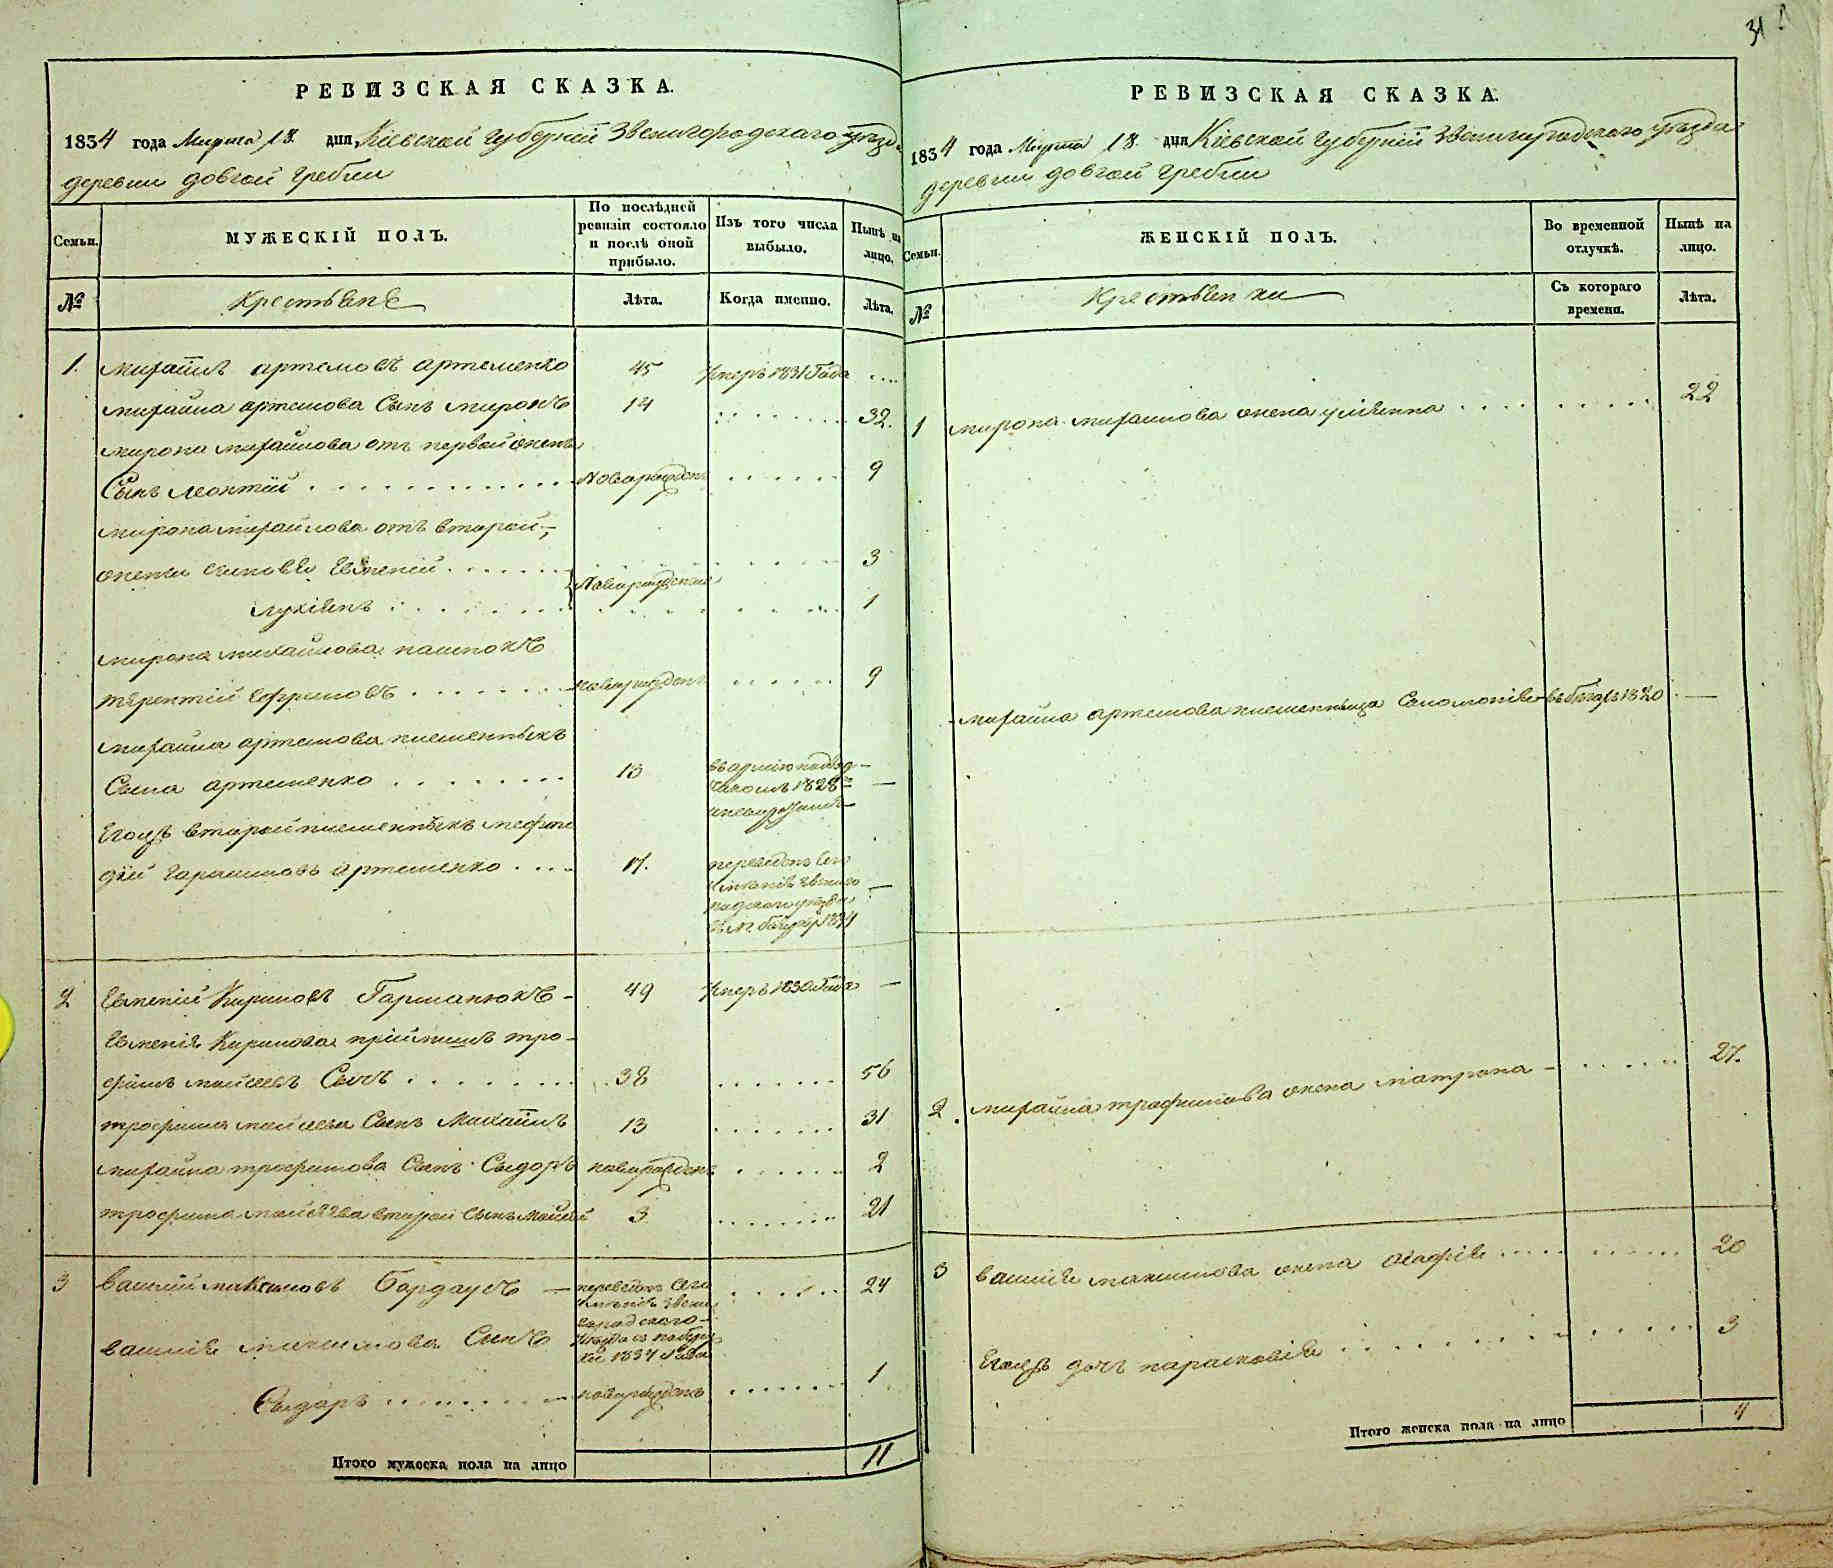 31
РЕВИЗСКАЯ СКАЗКА.
1834 года Марта 18. дня Кіевской губерніи Звенигородскаго уезда
деревни довгой гребли
Семьи.
МУЖЕСКІЙ ПОЛЪ.
По послѣдней ревизіи состояло и послѣ оной прибыло.
Изъ того числа выбыло.
Нынѣ на лицо.
№
Крестьяне
Лѣта.
Когда именно.
Лѣта.
1. михаилъ артемовъ артеменко 45 умеръ 1831 Года ....
михайла артемова Сынъ миронъ 14 32.
мирона михайлова отъ первой жены
Сынъ леонтій Новорожденъ 9
мирона михайлова отъ второй
жены сыновья Евгеній 3
Новорожденные
лукіянъ 1
мирона михайлова пасынокъ
терентій Ефремовъ новорожденъ 9
михайла артемова племенныкъ
Сыла артеменко 13
1828
Егожъ второй племенныкъ мефо
дій артеменко 17.
переведенъ
2 Евгеній Кириловъ Гарманюкъ 49 умеръ 1830 Года —
Евгенія Кирилова пріймышъ тро-
фимъ мойсеевъ Сычъ 38 56
трофима мойсеева Сынъ Михаилъ 13 31
михайла трофимова Сынъ Сыдоръ новорожденъ 2
трофима мойсеева второй сынъ мойсей 3 21
3 василій максимовъ Бардаусъ — 24
переведенъ
1834 года
василія максимова Сынъ
Сыдоръ новорожденъ 1
Итого мужеска пола на лицо 11
РЕВИЗСКАЯ СКАЗКА.
1834 года Марта 18. дня Кіевской губерніи Звенигородскаго уезда
деревни довгой гребли
Семьи.
ЖЕНСКІЙ ПОЛЪ.
Во временной отлучкѣ.
Нынѣ на лицо.
№
Крестьянки
Съ котораго времени.
Лѣта.
1 мирона михайлова жена улияна 22
михайла артемова племенныца Соломонія въ бегахъ 1820 —
2. михайла трофимова жена матрона 27.
3 василія максимова жена агафія 20
Егожъ дочъ парасковія 3
Итого женска пола на лицо 4